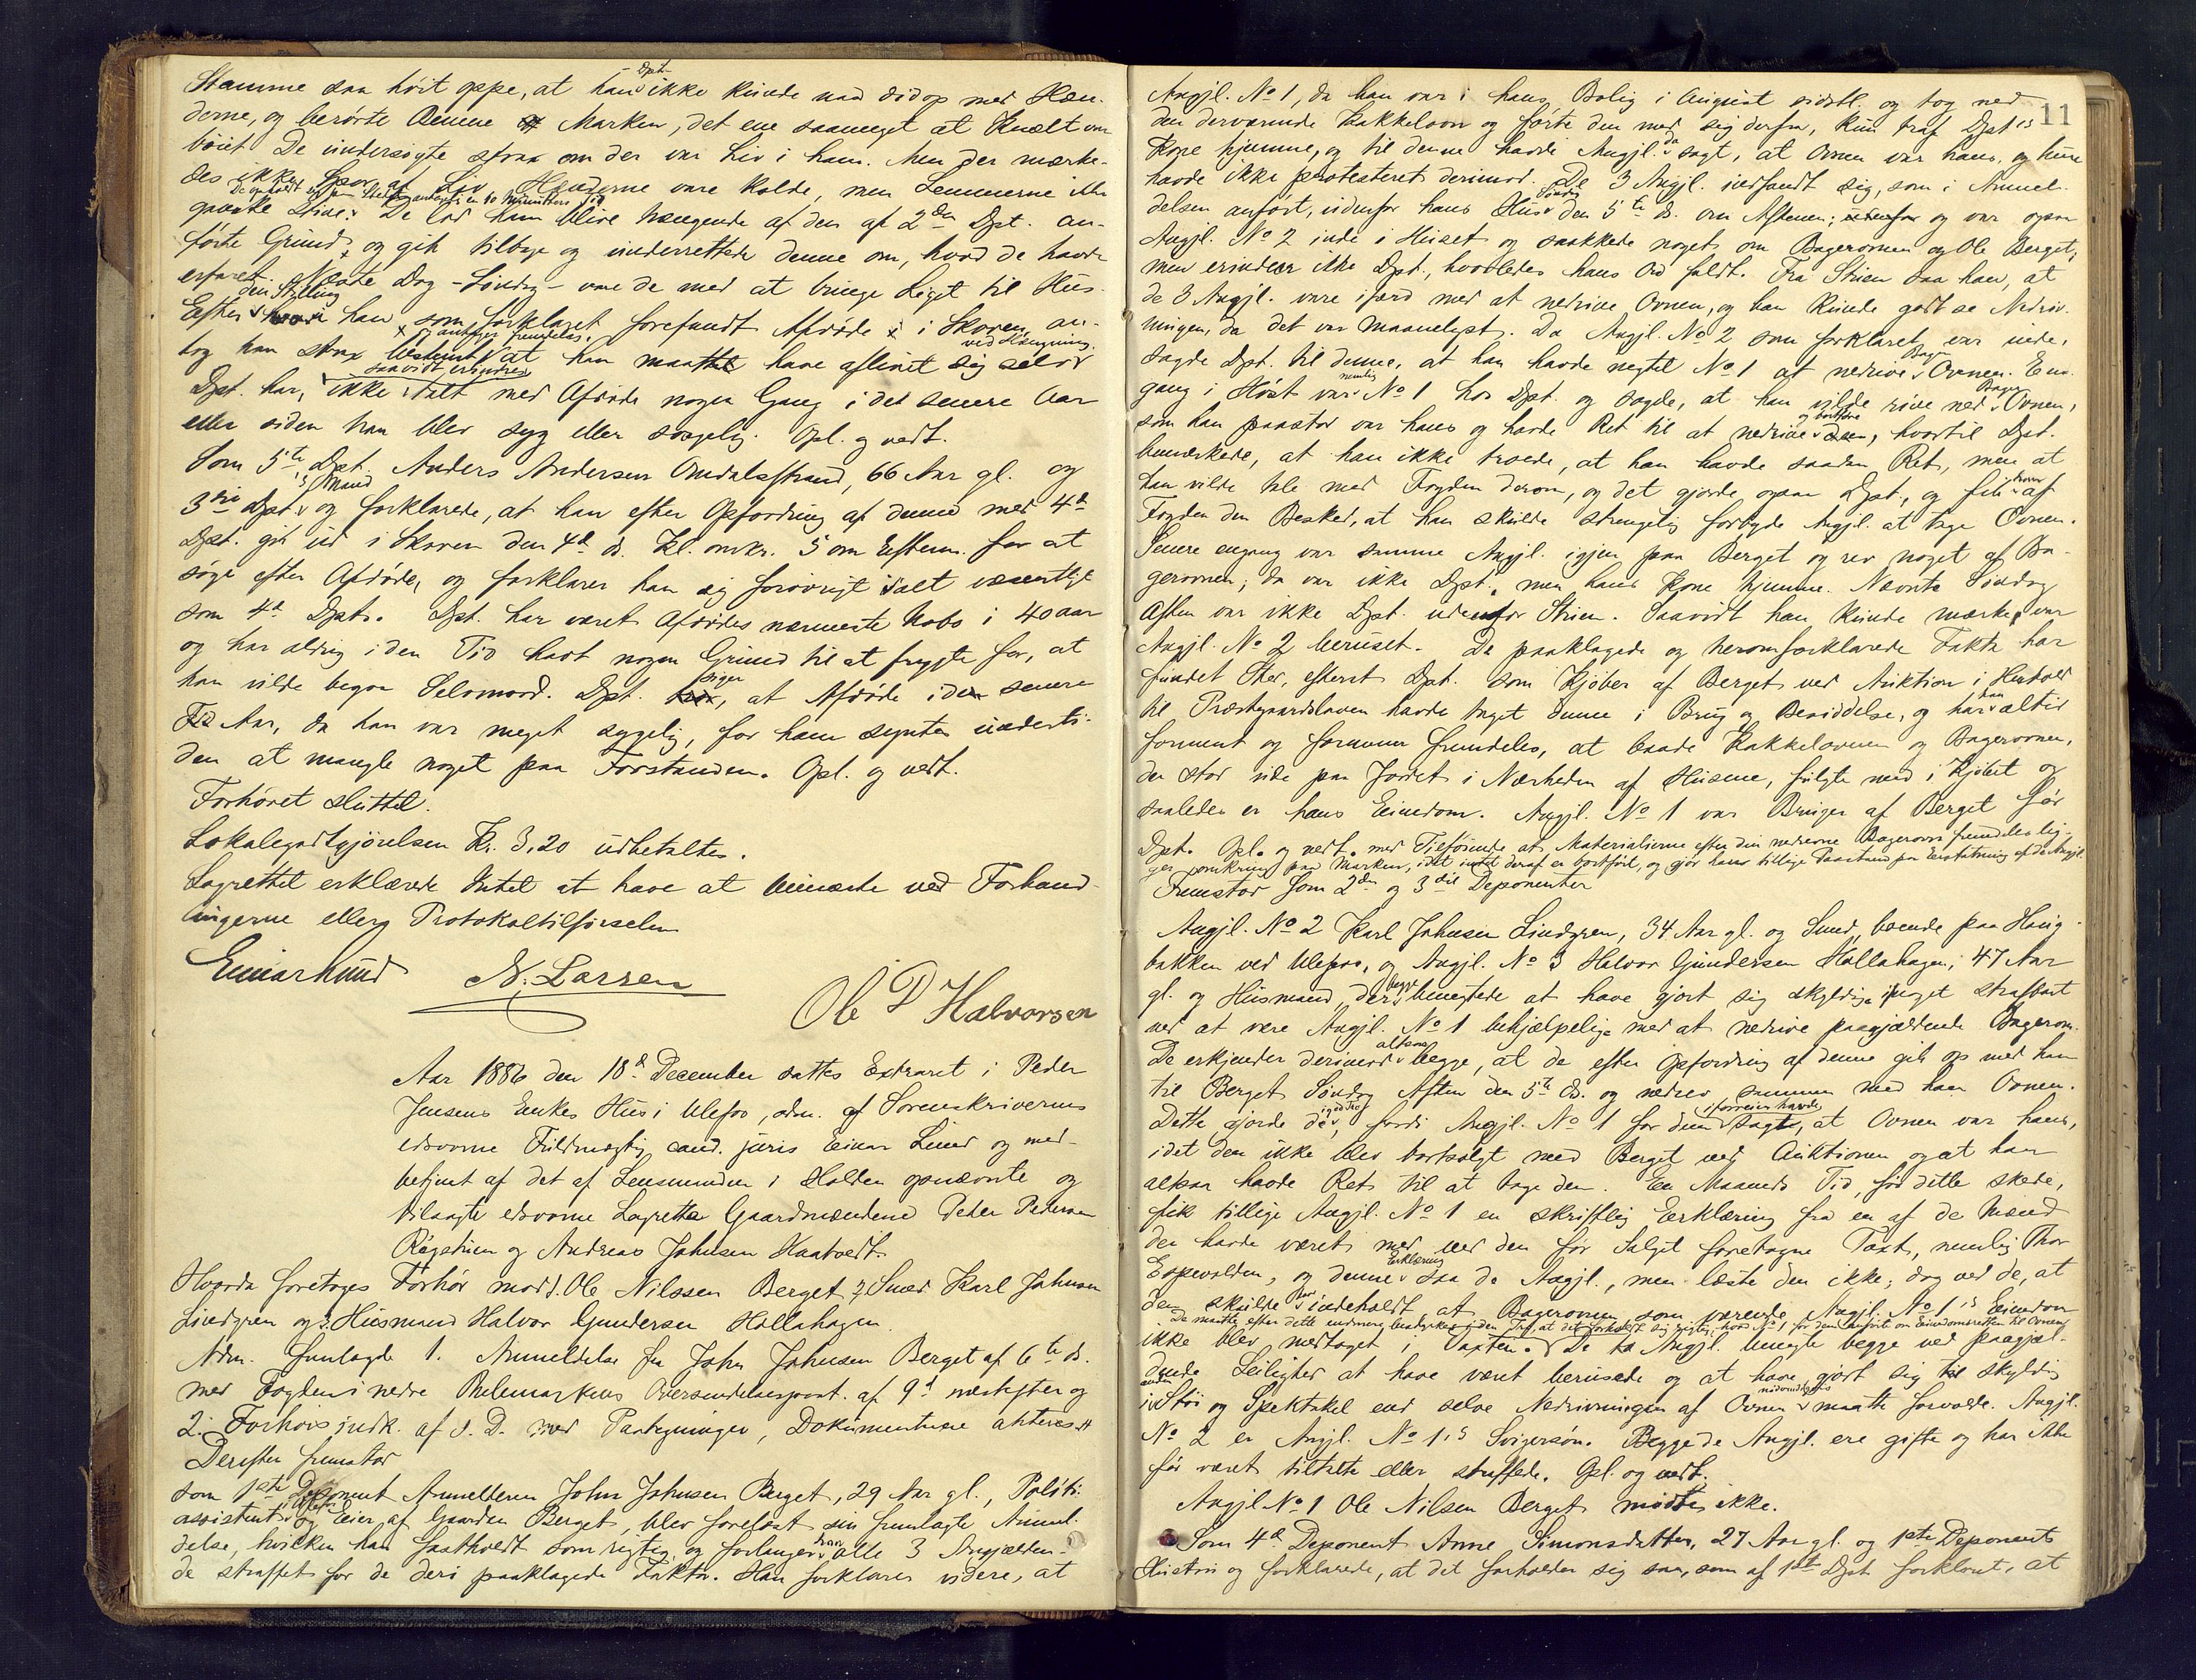 Stamme saa höit oppe, at han -Dpt- ikke kunde naa did op med Hæn-
derne, og berörte Benene Marken, det ene saameget at Knæet var
böiet. De undersögte strax om der var Liv i ham. Men der mærke-
des ikke Spor af Liv. Hænderne vare kolde, men Lemmerne ikke
De opholdt sig paa Stedet antagelig en 10 Minutters Tid
ganske stive. De lod ham blive hængende af den af 2den Dpt. an-
förte Grund, og gik tilbage og underrettede denne om, hvad de havde
erfaret. Næste Dag -Söndag- vare de med at bringe Liget til Hus.
Efter den Stilling han som forklaret forefandt Afdöde i Skoven, an-
tog han strax, og antager fremdeles, at han maatte have aflivet sig selv ved Hængning.
Dpt. har, saavidt erindres, ikke talt med Afdöde nogen Gang i det senere Aar
eller siden han blev syg eller sögelig. Opl. og vedt.
Som 5te Dpt. Anders Andersen Omdalsstrand, 66 Aar gl. og
3die Dpts Mand og forklarede, at han efter Opfordring af denne med 4d
Dpt. gik ud i Skoven den 4d ds. Kl. omkr. 5 om Efterm. for at
söge efter Afdöde, og forklarer han sig forövrigt i alt væsentligt
som 4d Dpt. Dpt. har været Afdödes nærmeste Nabo i 40 aar
og har aldrig i den Tid havt nogen Grund til at frygte for, at
han vilde begaa Selvmord. Dpt. siger, at Afdöde i den senere
Aar, da han var meget sygelig, for ham syntes underti-
den at mangle noget paa Forstanden. Opl. og vedt.
Forhöret sluttet.
Lokalegodtgjörelsen Kr. 3,20 udbetaltes.
Lagrettet erklærede Intet at have at bemærke ved Forhand-
lingerne eller Protokoltilförselen
Einar Lund N. Larsen
Ole P Halvorsen
Aar 1886 den 18d December sattes Extraret i Peder
Jensens Enkes Hus i Ulefos, adm. af Sorenskriverens
edsvorne Fuldmægtig cand. juris Einar Lund og med-
betjent af det af Lensmanden i Holden opnævnte og
tilsagte edsvorne Lagrette Gaardmændene Peder Pedersen
Rögstrien og Andreas Johnsen Haatvedt.
Hvorda foretoges Forhör mod 1. Ole Nilssen Berget, 2, Smed Karl Johnsen
Lindgren og 3 Husmand Halvor Gundersen Hollahagen
Adm. fremlagde 1. Anmeldelse fra John Johnsen Berget af 6te ds.
med Fogden i nedre Thelemarkens Oversendelsespaat. af 9d næstefter og
2. Forhörsindk. af s. D. med Paategninger, Dokumenterne akteres.
Derefter fremstod
som 1ste Deponent Anmelderen John Johnsen Berget, 29 Aar gl., Politi-
assistent i Ulefos og Eier af Gaarden Berget, blev forelæst sin fremlagte Anmel-
delse, hvilken han fastholdt som rigtig og forlanger han alle 3 Angjælden-
de straffet for de deri paaklagede Fakta. Han forklarer videre, at
11
Angjl. No 1, da han var i hans Bolig i August sidstl. og tog ned
den derværende Kakkelovn og förte den med sig derfra, kun traf Dpts
Kone hjemme, og til denne havde Angjl. da sagt, at Ovnen var hans, og hun
havde ikke protesteret derimod. De 3 Angjl. indfandt sig, som i Anmel-
delsen anfört, udenfor hans Hus Söndag den 5te ds. om Aftenen; og var ogsaa
Angjl. No 2 inde i Huset og snakkede noget om Bagerovnen og Ole Berget,
men erindrer ikke Dpt., hvorledes hans Ord faldt. Fra Stuen saa han, at
de 3 Angjl. vare ifærd med at nedrive Ovnen, og han kunde godt se Nedriv-
ningen, da det var Maanelyst. Da Angjl. No 2 som forklaret var inde,
sagde Dpt. til denne, at han havde negtet No 1 at nedrive Bager Ovnen. En-
gang i Höst var nemlig No 1 hos Dpt. og sagde, at han vilde rive ned Bager Ovnen,
som han paastod var hans og havde Ret til at nedrive og bortföre den, hvortil Dpt.
bemærkede, at han ikke troede, at han havde saadan Ret, men at
han vilde tale med Fogden derom, og det gjorde ogsaa Dpt., og fik han af
Fogden den Besked, at han skulde strengelig forbyde Angjl. at tage Ovnen.
Senere engang var samme Angjl. igjen paa Berget og rev noget af Ba-
gerovnen; da var ikke Dpt., men hans Kone hjemme. Nævnte Söndag
Aften var ikke Dpt. udenfor Stuen. Saavidt han kunde mærke, var
Angjl. No 2 beruset. De paaklagede og heromforklarede Fakta har
fundet Sted, efterat Dpt. som Kjöber af Berget ved Auktion i Henhold
til Præstegaardsloven havde taget denne i Brug og Besiddelse, og har han altid
forment og formener fremdeles, at baade Kakkelovnen og Bagerovnen,
der stod ude paa Jordet i Nærheden af Husene, fulgte med i Kjöbet og
saaledes er hans Eiendom. Angjl. No 1 var Bruger af Berget för
Dpt. Opl. og vedt. med Tilföiende at Materialierne efter den nedrevne Bagerovn fremdeles lig-
ger omkring paa Marken, idet intet deraf er bortfört, og gjör hans tillige Paastand paa Erstatning af de Angjl.
Fremstod som 2den og 3die Deponenter
Angjl. No 2 Karl Johnsen Lindgren, 34 Aar gl. og Smed, boende paa Haug-
bakken ved Ulefos, og Angjl. No 3 Halvor Gundersen Hollahagen, 47 Aar
gl. og Husmand, der begge benegtede at have gjort sig skyldige i noget strafbart
ved at være Angjl. No 1 behjælpelige med at nedrive paagjældende Bagerovn.
De erkjender derimod altsaa begge, at de efter Opfordring af denne gik op med ham
til Berget Söndag Aften den 5te ds. og nedrev sammen med ham Ovnen.
Dette gjorde de i god Tro, fordi Angjl. No 1 for dem iforveien havde sagt, at Ovnen var hans,
idet den ikke blev bortsolgt med Berget ved Auktionen og at han
altsaa havde Ret til at tage den. En Maaneds Tid, för dette skede,
fik tillige Angjl. No 1 en skriftlig Erklæring fra en af de Mænd
der havde været med ved den för Salget foretagne Taxt, nemlig Thor
Espevolden, og denne Erklæring saa de Angjl., men læste den ikke; dog ved de, at
den skulde have indeholdt, at Bagerovnen som værende Angjl. No 1's Eiendom
De maatte efter dette endmere bestyrkes i den Tro, at det forholdt sig rigtig, hvad No 1 for dem anfört om Eiendomsretten til Ovnen
ikke blev medtaget i Taxten. De Angjl. benegte begge ved paagjæl-
dende Leilighed at have været berusede og at have gjort sig skyldig
i anden Stöi og Spektakel end selve Nedrivningen af Ovnen nödvendigvis maatte forvolde. Angjl.
No 2 er Angjl. No 1's Svigersön. Begge de Angjl. ere gifte og har ikke
för været tiltalte eller straffede. Opl. og vedt.
Angjl No 1 Ole Nilsen Berget mödte ikke.
Som 4d Deponent Anne Simonsdatter, 27 Aar gl. og 1ste Deponents
Hustru og forklarede, at det forholder sig saa, som af 1ste Dpt. forklaret, at